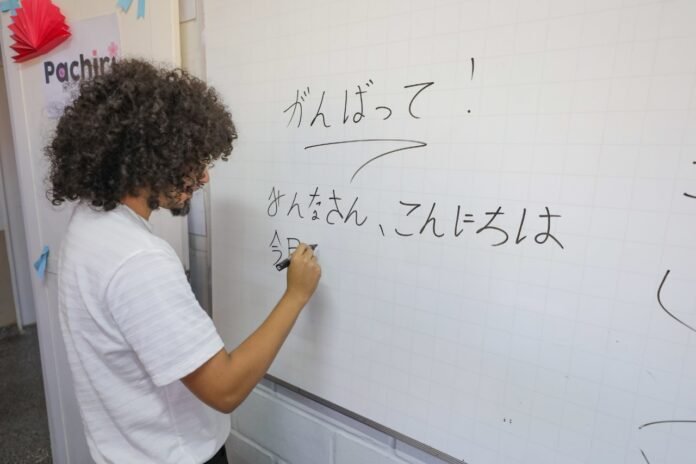 がんばって！
みんなさん、こんにちは
今日